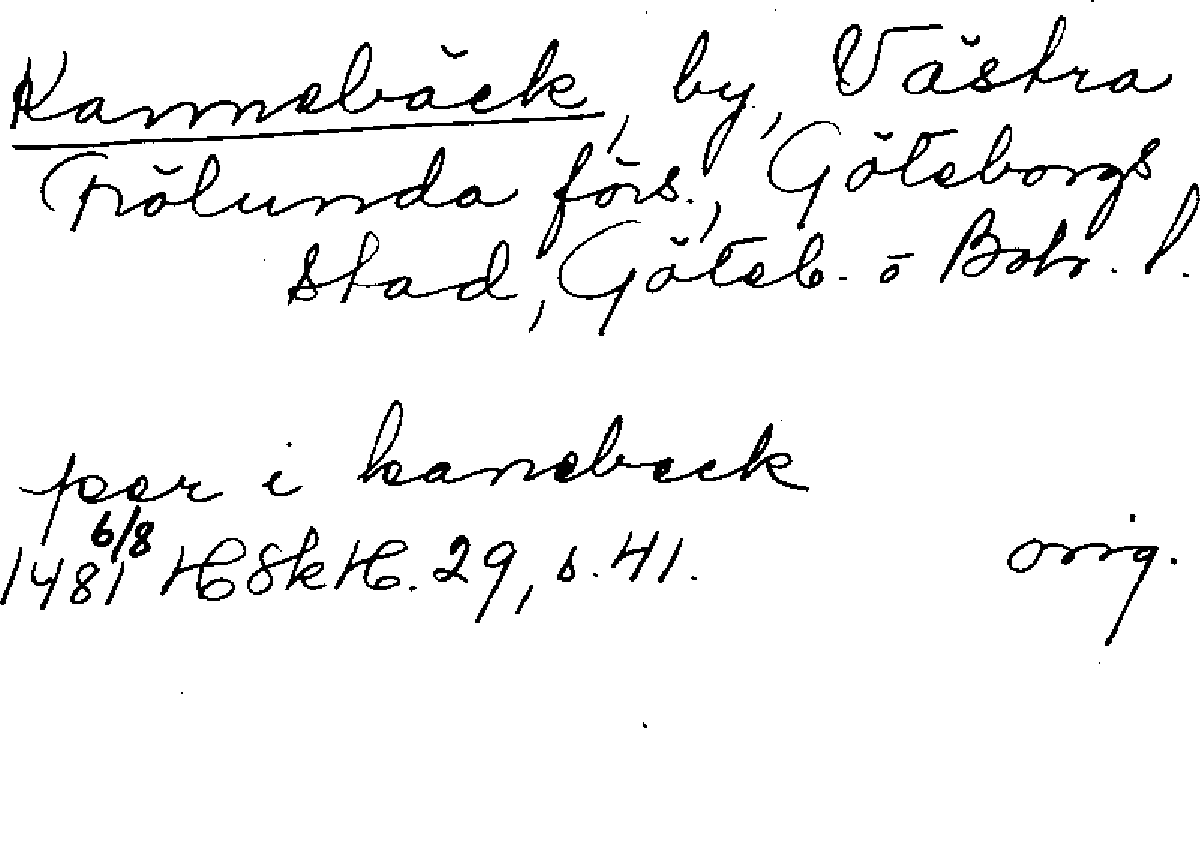 Kannebäck, by, Västra
Frölunda förs., Göteborgs
stad, Göteb. o Boh. l.
peer i kanebeck
1481 6/8 HSkH. 29, s. 41. orig.